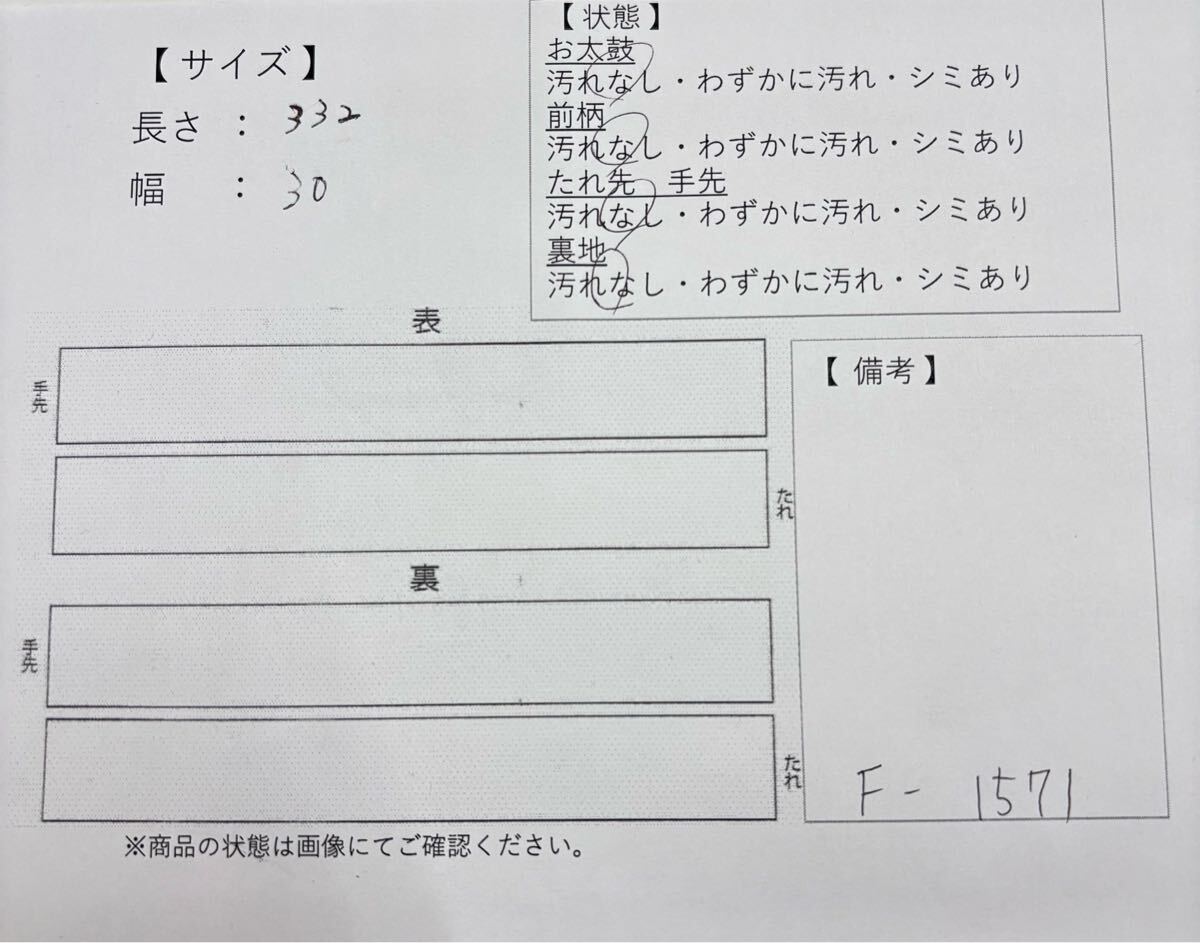 【サイズ】
長さ ： 332
幅 ： 30
【状態】
お太鼓
汚れなし・わずかに汚れ・シミあり
前柄
汚れなし・わずかに汚れ・シミあり
たれ先　手先
汚れなし・わずかに汚れ・シミあり
裏地
汚れなし・わずかに汚れ・シミあり
表
手先
たれ
裏
手先
たれ
【備考】
F- 1571
※商品の状態は画像にてご確認ください。